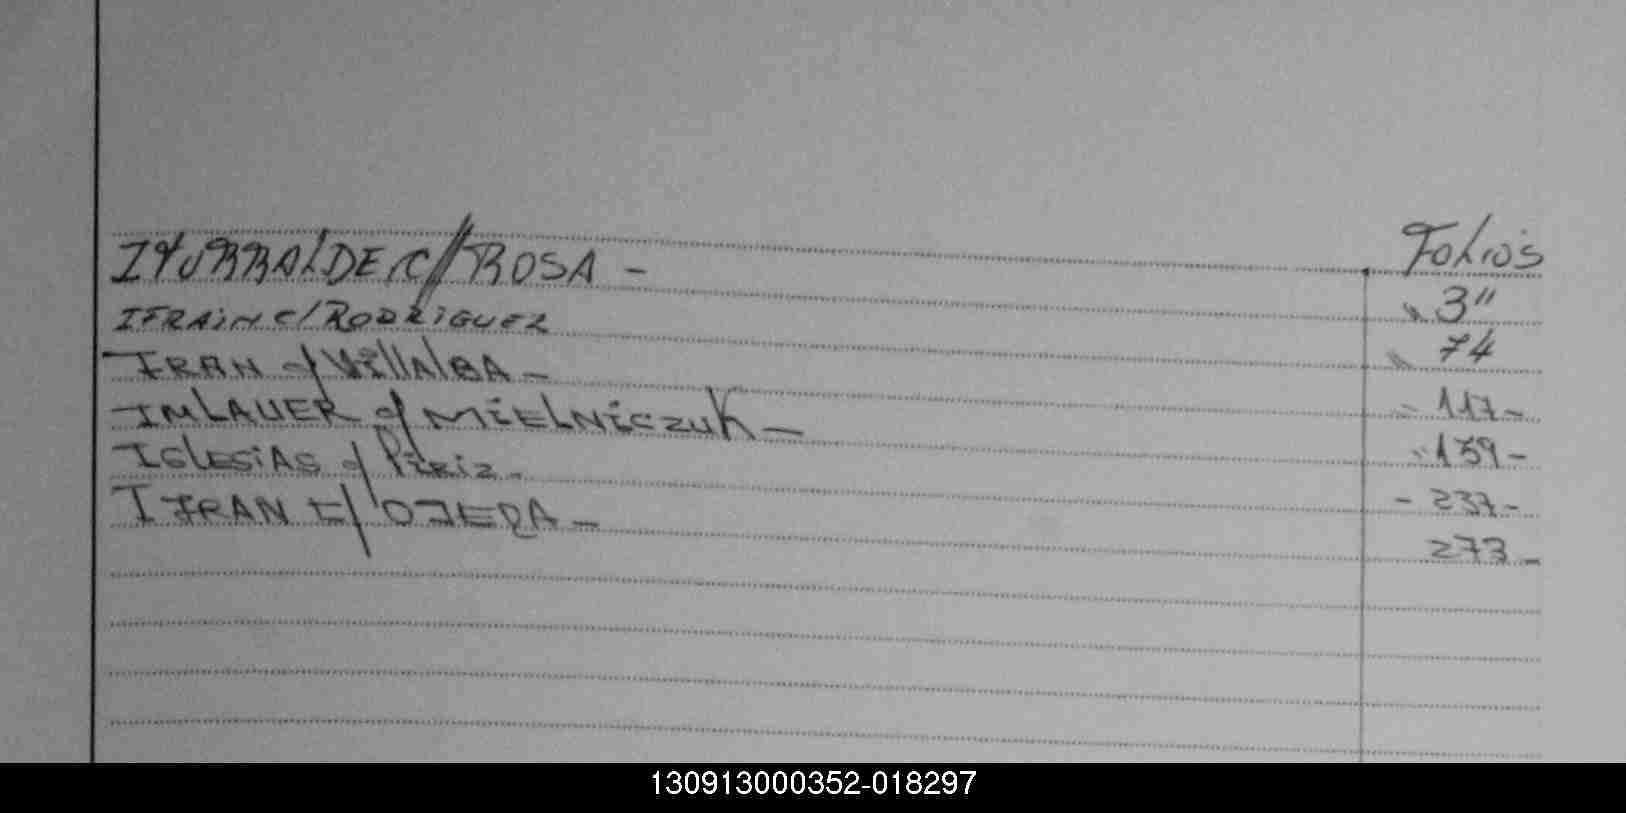 ITURRALDE C/ ROSA -
Folios
IFRAIN C/ RODRIGUEZ
" 3"
IFRAN c/ VillAlBA -
" 74
IMLAUER c/ MIELNICZUK -
- 117 -
IGLESIAS c/ PIRIZ -
" 159 -
IFRAN C/ OJEDA -
- 237 -
273 -
130913000352-018297